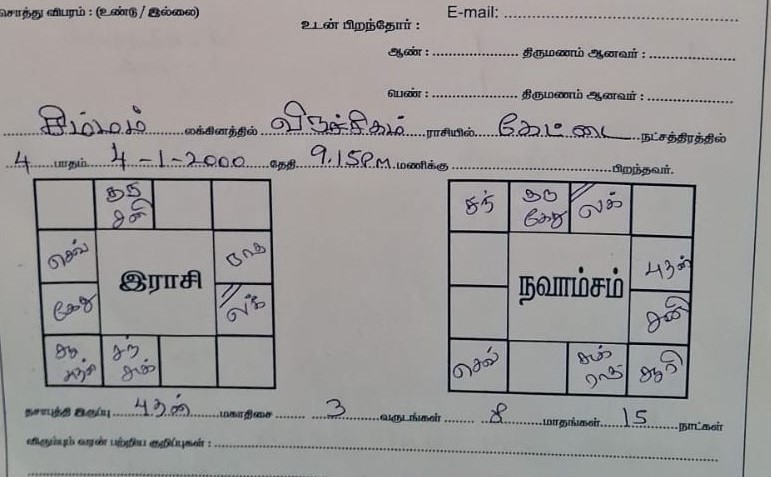 சொத்து விபரம் : (உண்டு / இல்லை)
E-mail:
உடன் பிறந்தோர் :
ஆண் : திருமணம் ஆனவர் :
பெண் : திருமணம் ஆனவர் :
சிம்மம் லக்கினத்தில் விருச்சிகம் ராசியில் கேட்டை நட்சத்திரத்தில்
4 பாதம் 4-1-2000 தேதி 9.15 P.M. மணிக்கு பிறந்தவர்.
குரு சனி
சந் குரு கேது லக்
செவ் ராகு
புதன்
இராசி
நவாம்சம்
கேது லக்
சனி
சூ புதன் சந் சுக்
செவ் சுக் ராகு சூரி
தசாபுத்தி இருப்பு புதன் மகாதிசை 3 வருடங்கள் 8 மாதங்கள் 15 நாட்கள்
விரும்பும் வரன் பற்றிய குறிப்புகள் :